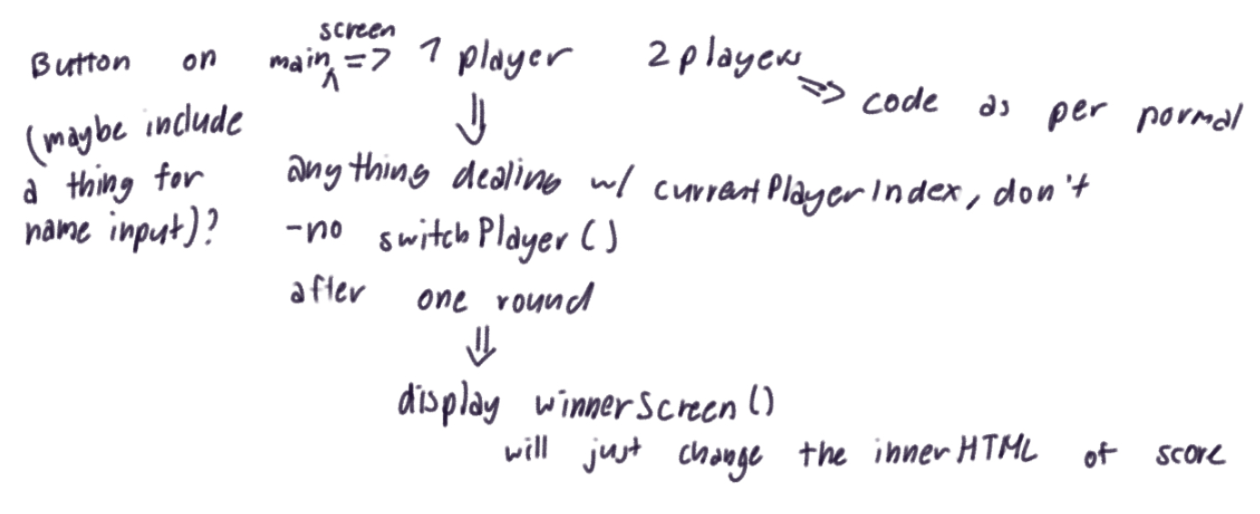 Button on main screen => 1 player 2 players
=> code as per normal
(maybe include
a thing for
name input)?
anything dealing w/ currentPlayerIndex, don't
-no switchPlayer()
after one round
display winnerScreen()
will just change the innerHTML of score